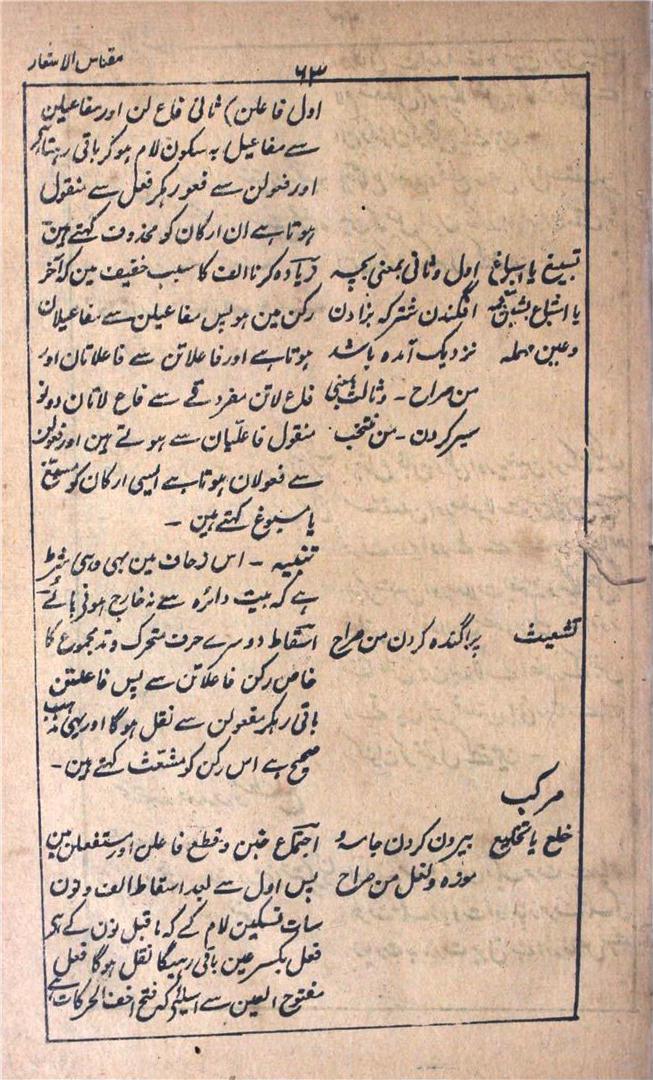 مقیاس الاشعار
۶۳
اول فاعلن) ثانی فاع لن اور مفاعیلن
سے مفاعیل بہ سکون لام ہو کر باقی رہتا ہے
اور فعولن سے فعو رہکر فعل سے منقول
ہوتا ہے ان ارکان کو محذوف کہتے ہین
تسبیغ یا اسباغ اول و ثانی بمعنی بچہ زیادہ کرنا الف کا سبب خفیف مین کہ آخر
یا اشباع بشین افگندن شتر کہ بزادن رکن مین ہو پس مفاعیلن سے مفاعیلان
و عین مہملہ نزدیک آمدہ باشد ہوتا ہے اور فاعلاتن سے فاعلاتان اور
من صراح ۔ و ثالث بمعنی فاع لاتن مفروقے سے فاع لاتان دونو
سیر کردن ۔ من منتخب منقول فاعلیان سے ہوتے ہین اور فعولن
سے فعولان ہوتا ہے ایسی ارکان کو مسبغ
یا سبوغ کہتے ہین ۔
تنبیہ ۔ اس زحاف مین بہی وہی شرط
ہے کہ بیت دائرہ سے نہ خارج ہونی پائے
تشعیث پراگندہ کردن من صراح اسقاط دوسرے حرف متحرک وتد مجموع کا
خاص رکن فاعلاتن سے پس فاعلتن
باقی رہکر مفعولن سے نقل ہوگا اور یہی مذہب
صحیح ہے اس رکن کو مشعث کہتے ہین ۔
مرکب
خلع یا تخلیع بیرون کردن جامہ و اجتماع خبن و قطع فاعلن اور مستفعلن مین
موزہ و نعل من صراح پس اول سے بعد اسقاط الف و نون
سات تسکین لام کے کہ ماقبل نون کے ہے
فعل بکسر عین باقی رہیگا نقل ہوگا فعل
مفتوح العین سے اسلئے کہ فتح اخف الحرکات ہے